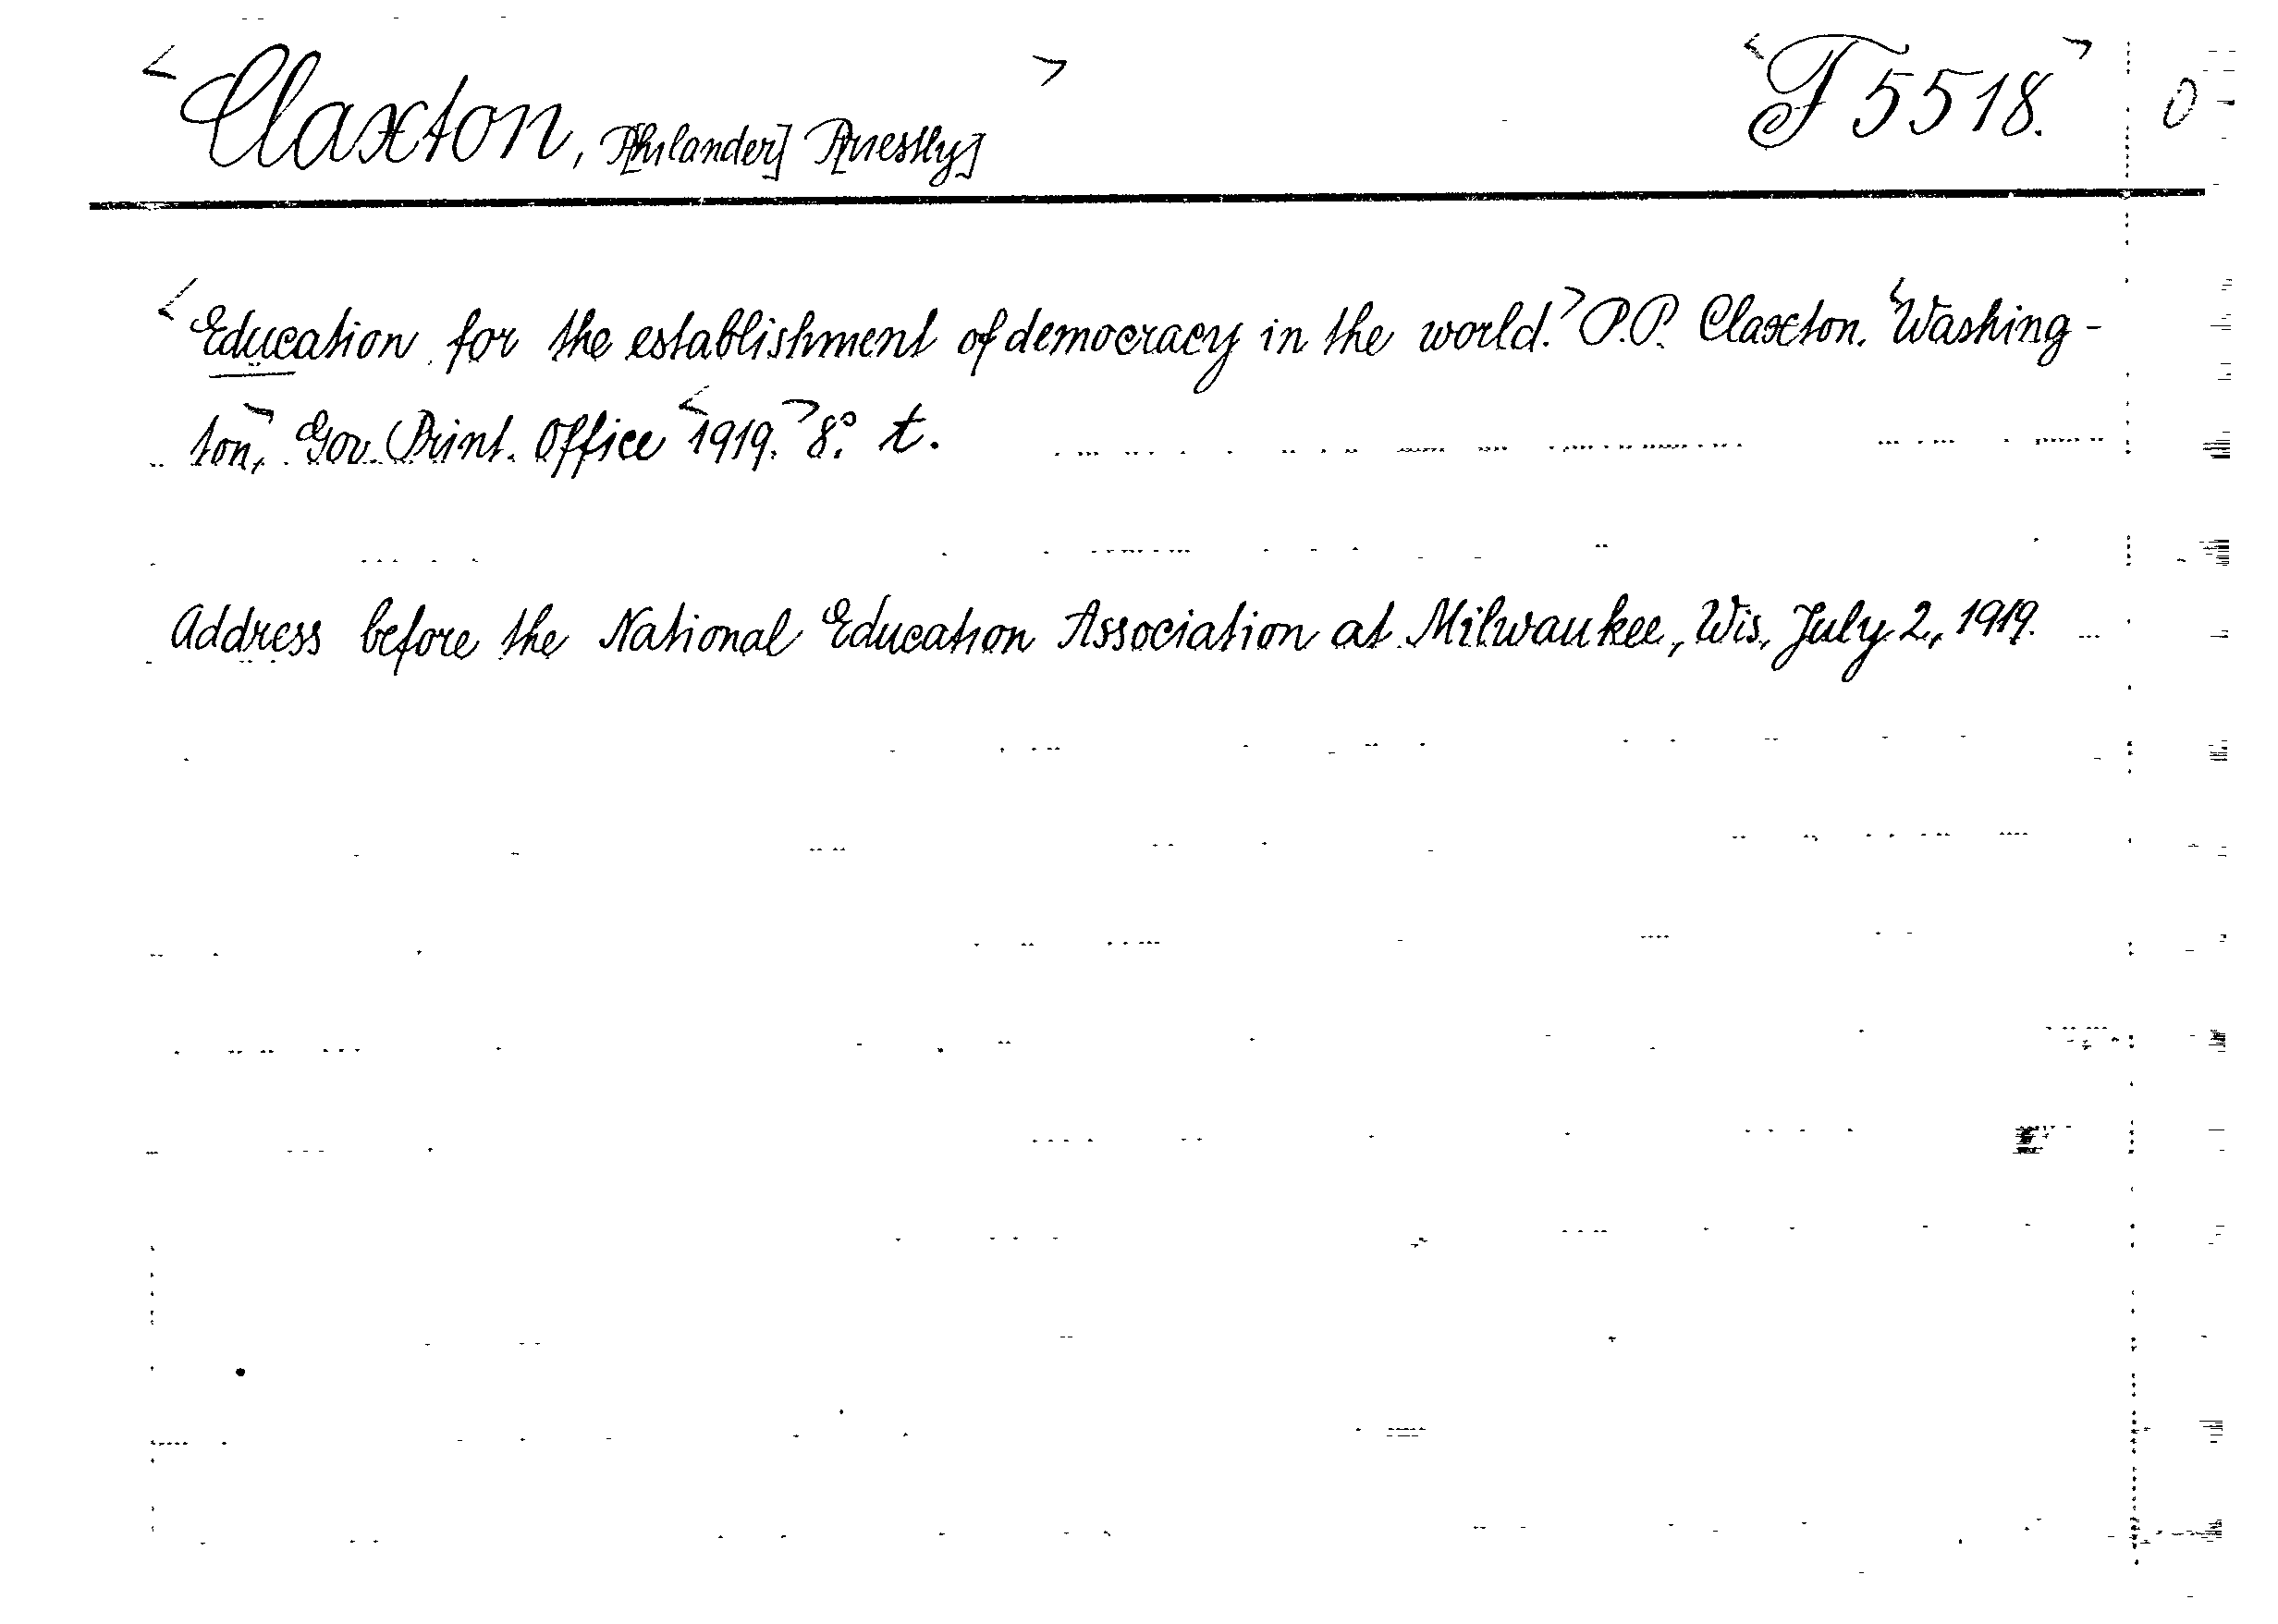 <Claxton, P[hilander] P[riestly]> <F 5518.> 0
<Education for the establishment of democracy in the world.> P.P. Claxton. <Washing-
ton,> Gov. Print. Office <1919.> 8° t.
Address before the National Education Association at Milwaukee, Wis., July 2, 1919.